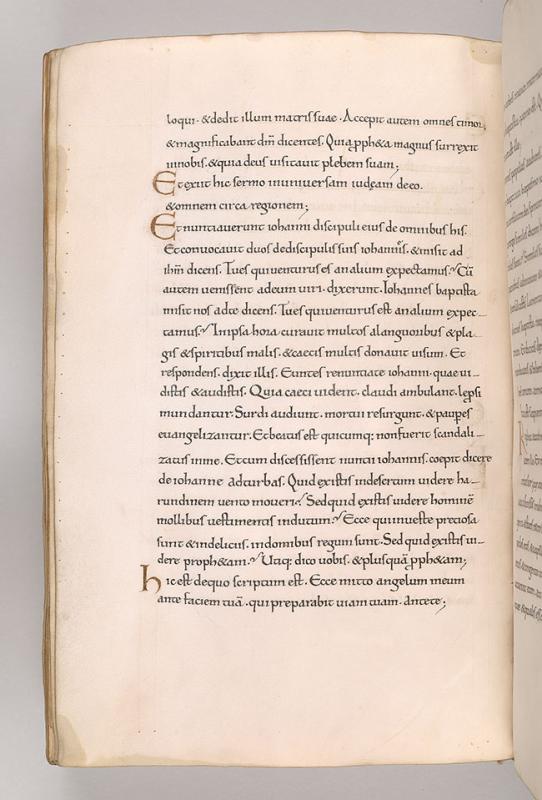 loqui · &dedit illum matri suae · Accepit autem omnes timor;
&magnificabant dm̄ dicentes. Quia ꝓph&a magnus surrexit
innobis. &quia deus uisitauit plebem suam;
Et exiit hic sermo inuniuersam iudeam deeo.
&omnem circa regionem;
Et nuntiauerunt iohanni discipuli eius de omnibus his.
Et conuocauit duos dediscipulis suis iohannes. &misit ad
ihm̄ dicens. Tues quiuenturus es an alium expectamus. Cū
autem uenissent adeum uiri. dixerunt. Iohannes baptista
misit nos adte dicens. Tues quiuenturus est an alium expec-
tamus. Inipsa hora curauit multos alanguoribus &pla-
gis &spiritibus malis. &caecis multis donauit uisum. Et
respondens. dixit illis. Euntes renuntiate iohanni. quae ui-
distis &audistis. Quia caeci uident. claudi ambulant. leprsi
mundantur. Surdi audiunt. mortui resurgunt. &pauꝑes
euangelizantur. Et beatus est quicumq; nonfuerit scandali-
zatus inme. Et cum discessissent nuntii iohannis. coepit dicere
de iohanne adturbas. Quid existis indesertum uidere ha-
rundinem uento moueri. Sed quid existis uidere hominē
mollibus uestimentis indutum. Ecce qui inueste preciosa
sunt &indeliciis. indomibus regum sunt. Sed quid existis ui-
dere proph&am. Utiq; dico uobis. &plusquā ꝓph&am;
hic est dequo scriptum est. Ecce mitto angelum meum
ante faciem tuā · qui preparabit uiam tuam · ante te;